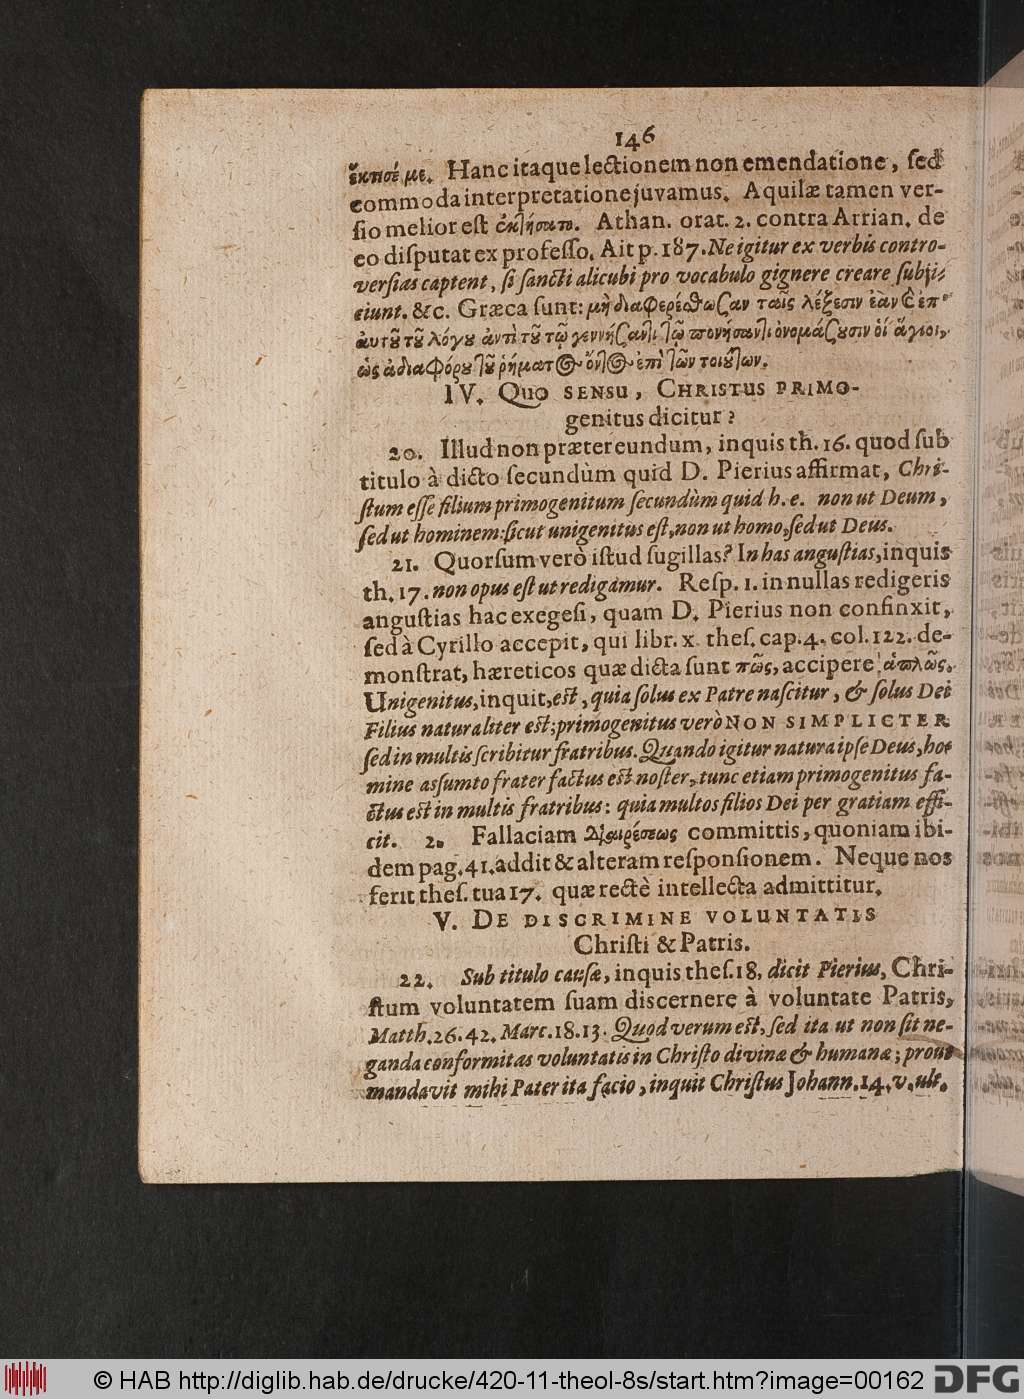 146
ἔκτισέ με. Hanc itaque lectionem non emendatione, sed
commoda interpretatione juvamus. Aquilæ tamen ver-
sio melior est ἐκτήσατο. Athan. orat. 2. contra Arrian. de
eo disputat ex professo. Ait p. 187. Ne igitur ex verbis contro-
versias captent, si sancti alicubi pro vocabulo gignere creare subji-
ciunt. &c. Græca sunt: μὴ διαφερέσθωσαν ταῖς λέξεσιν ἐὰν ἐπ'
ἀυτοῦ τοῦ λόγου ἀντὶ τοῦ τῷ γεννήσαντι τῷ ποιήσαντι ὀνομάζουσιν ὁἱ ἅγιοι,
ὡς ἀδιαφόρου τοῦ ῥήματος ὄντος ἐπὶ τῶν τοιούτων.
IV. QUO SENSU, CHRISTUS PRIMO-
genitus dicitur?
20. Illud non prætereundum, inquis th. 16. quod sub
titulo à dicto secundùm quid D. Pierius affirmat, Chri-
stum esse filium primogenitum secundùm quid h. e. non ut Deum,
sed ut hominem: sicut unigenitus est, non ut homo, sed ut Deus.
21. Quorsum verò istud sugillas? In has angustias, inquis
th. 17. non opus est ut redigamur. Resp. 1. in nullas redigeris
angustias hac exegesi, quam D. Pierius non confinxit,
sed à Cyrillo accepit, qui libr. x. thes. cap. 4. col. 122. de-
monstrat, hæreticos quæ dicta sunt πῶς, accipere ἁπλῶς.
Unigenitus, inquit, est, quia solus ex Patre nascitur, & solus Dei
Filius naturaliter est; primogenitus verò NON SIMPLICTER
sed in multis scribitur fratribus. Quando igitur natura ipse Deus, ho
mine assumto frater factus est noster, tunc etiam primogenitus fa-
ctus est in multis fratribus: quia multos filios Dei per gratiam effi-
cit. 2. Fallaciam διαιρέσεως committis, quoniam ibi-
dem pag. 41. addit & alteram responsionem. Neque nos
ferit thes. tua 17. quæ rectè intellecta admittitur.
V. DE DISCRIMINE VOLUNTATIS
Christi & Patris.
22. Sub titulo causæ, inquis thes. 18, dicit Pierius, Chri-
stum voluntatem suam discernere à voluntate Patris,
Matth. 26. 42. Marc. 18. 13. Quod verum est, sed ita ut non sit ne-
ganda conformitas voluntatis in Christo divinæ & humanæ; prout
mandavit mihi Pater ita facio, inquit Christus Johann. 14. v. ult.
© HAB http://diglib.hab.de/drucke/420-11-theol-8s/start.htm?image=00162
DFG